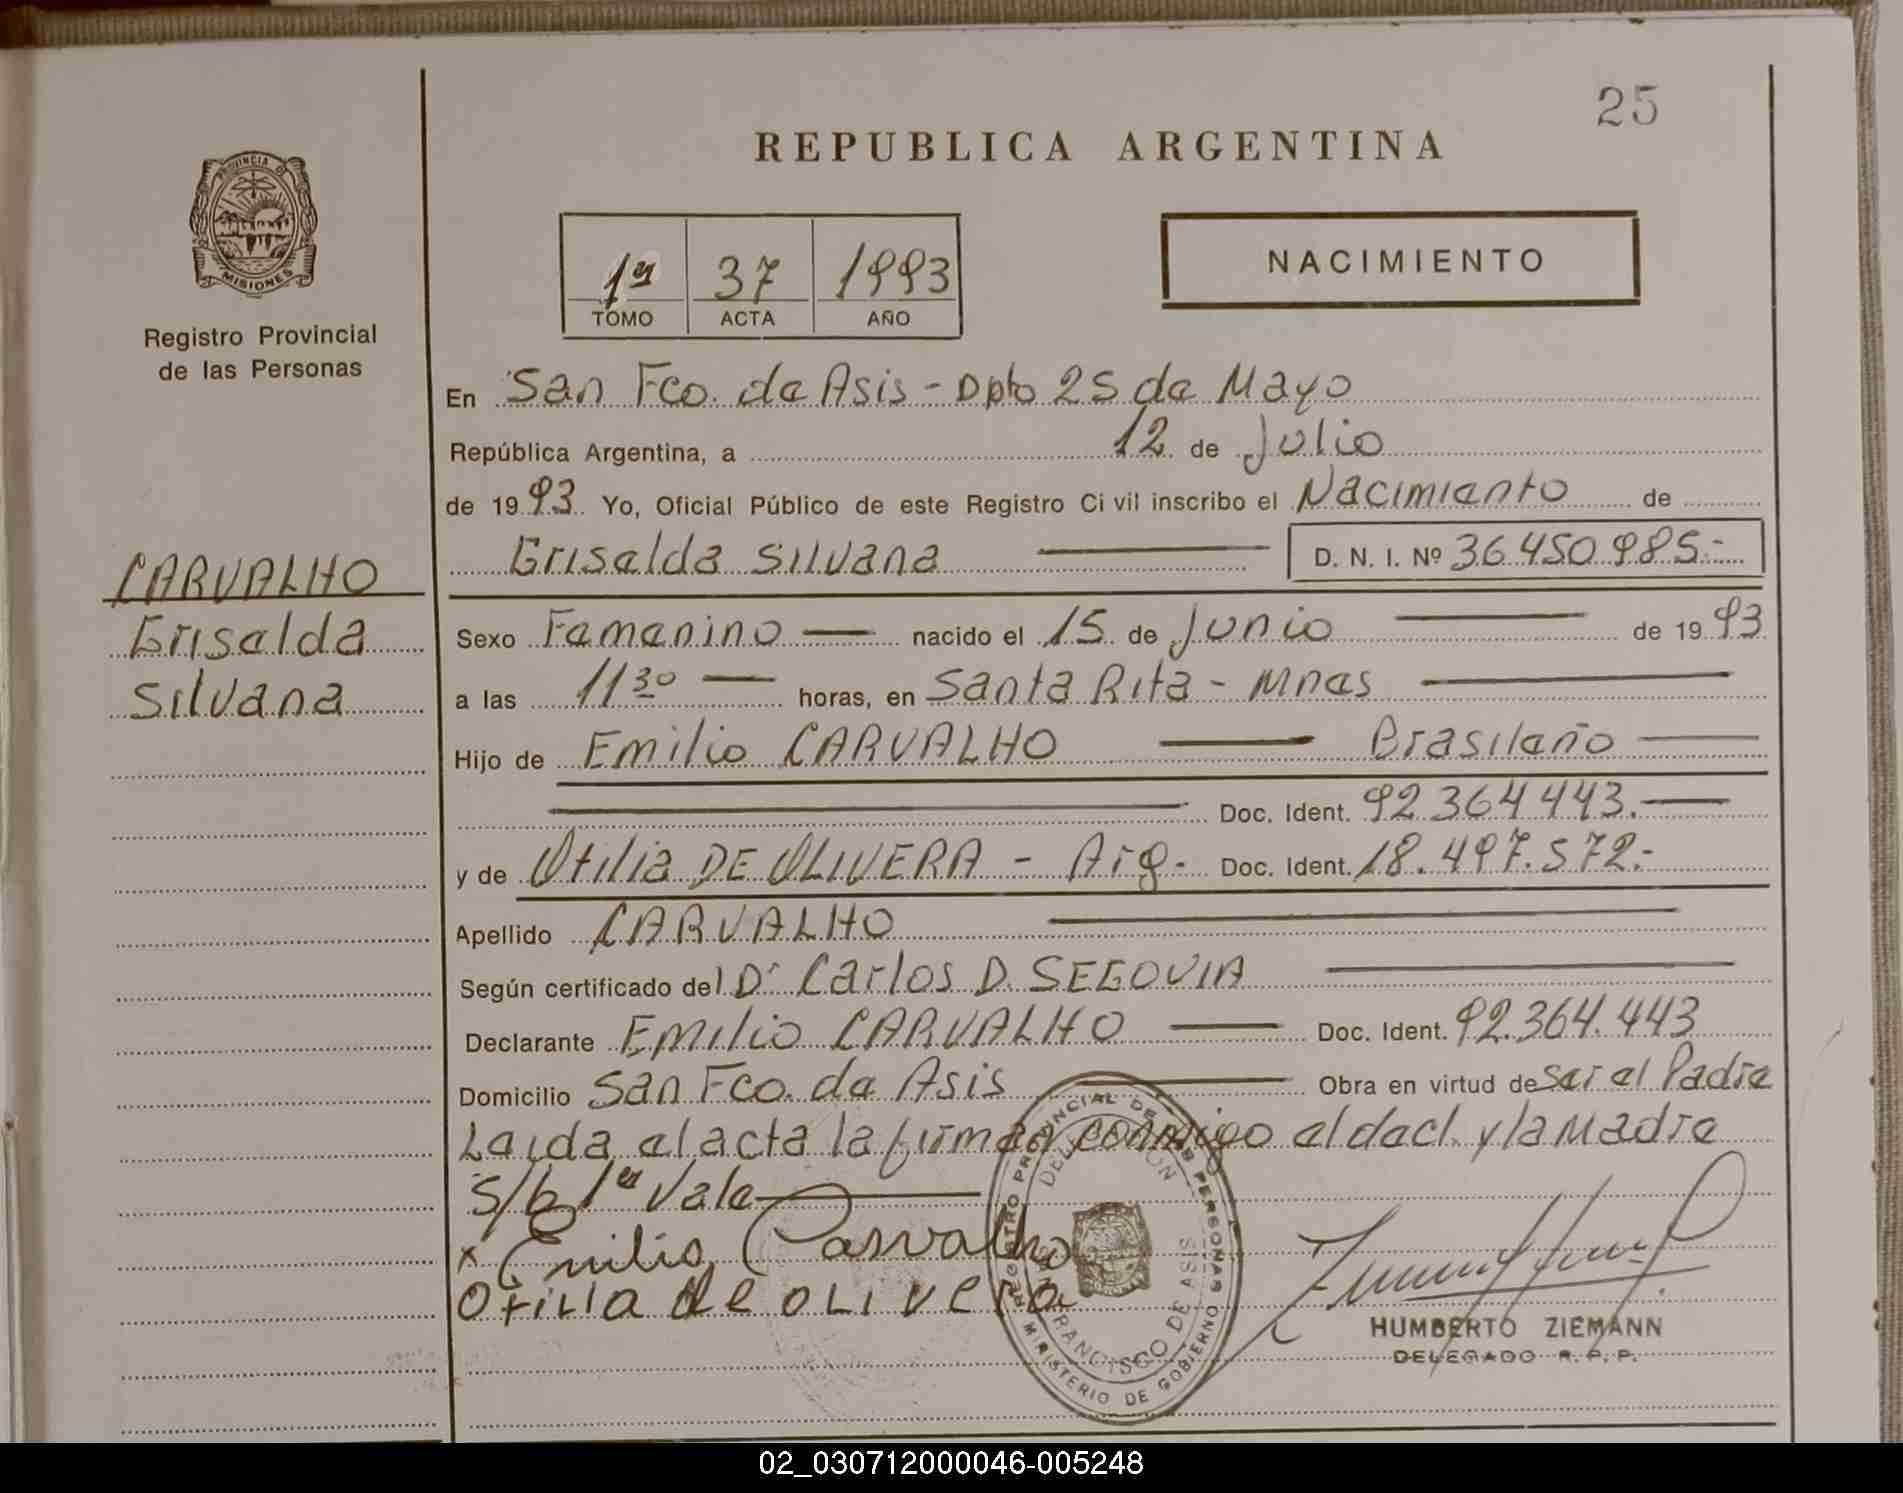 25
REPUBLICA ARGENTINA
PROVINCIA DE
MISIONES
Registro Provincial
de las Personas
1er 37 1993
TOMO ACTA AÑO
NACIMIENTO
En San Fco. de Asis - Dpto 25 de Mayo
República Argentina, a 12 de Julio
de 1993 Yo, Oficial Público de este Registro Civil inscribo el Nacimiento de
Griselda Silvana D. N. I. Nº 36.450.985.-
CARVALHO
Griselda
Silvana
Sexo Femenino — nacido el 15 de Junio — de 1993
a las 11 30 — horas, en Santa Rita - Mnes —
Hijo de Emilio CARVALHO — Brasileño —
Doc. Ident. 92 364 443. —
y de Otilia DE OLIVERA - Arg. Doc. Ident. 18.497.572.-
Apellido CARVALHO
Según certificado del Dr Carlos D. SEGOVIA
Declarante EMilio CARVALHO — Doc. Ident. 92.364.443
Domicilio San Fco. de Asis — Obra en virtud de Ser el Padre
Leida el acta la firman conmigo el decl. y la Madre
S/b 1er Vale
x Emilio Carvalho
OTILIA de OLIVERA
REGISTRO PROVINCIAL DE LAS PERSONAS
DELEGACION
FRANCISCO DE ASIS
MINISTERIO DE GOBIERNO
HUMBERTO ZIEMANN
DELEGADO R. P. P.
02_030712000046-005248